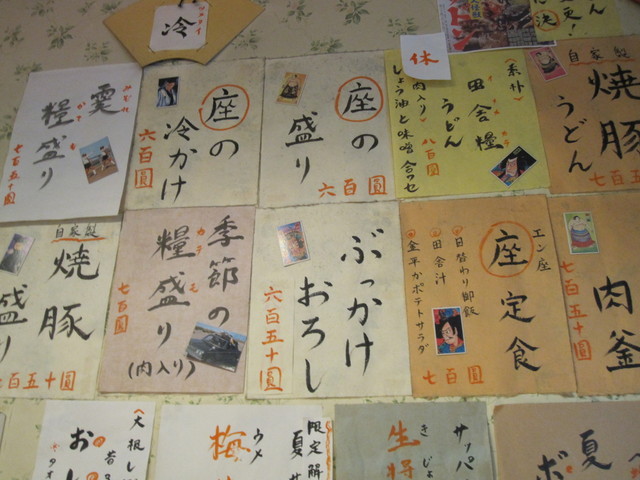 冷
霙
糧盛り
みぞれ
かてもり
七百五十圓
座の
冷かけ
六百圓
座の
盛り
六百圓
休
(素朴)
田舎糧
うどん
(肉入り) 八百圓
しょう油と味噌合ワセ
自家製
焼豚
うどん
七百五十圓
自家製
焼豚
盛り
六百五十圓
季節の
糧盛り
かても
(肉入り)
七百圓
ぶっかけ
おろし
六百五十圓
エン座
座定食
日替わり御飯
田舎汁
金平かポテトサラダ
七百圓
肉釜
七百五十圓
大根し
お
梅
ウメ
限定解
夏
生
サッパ
き じょ
夏
ボ